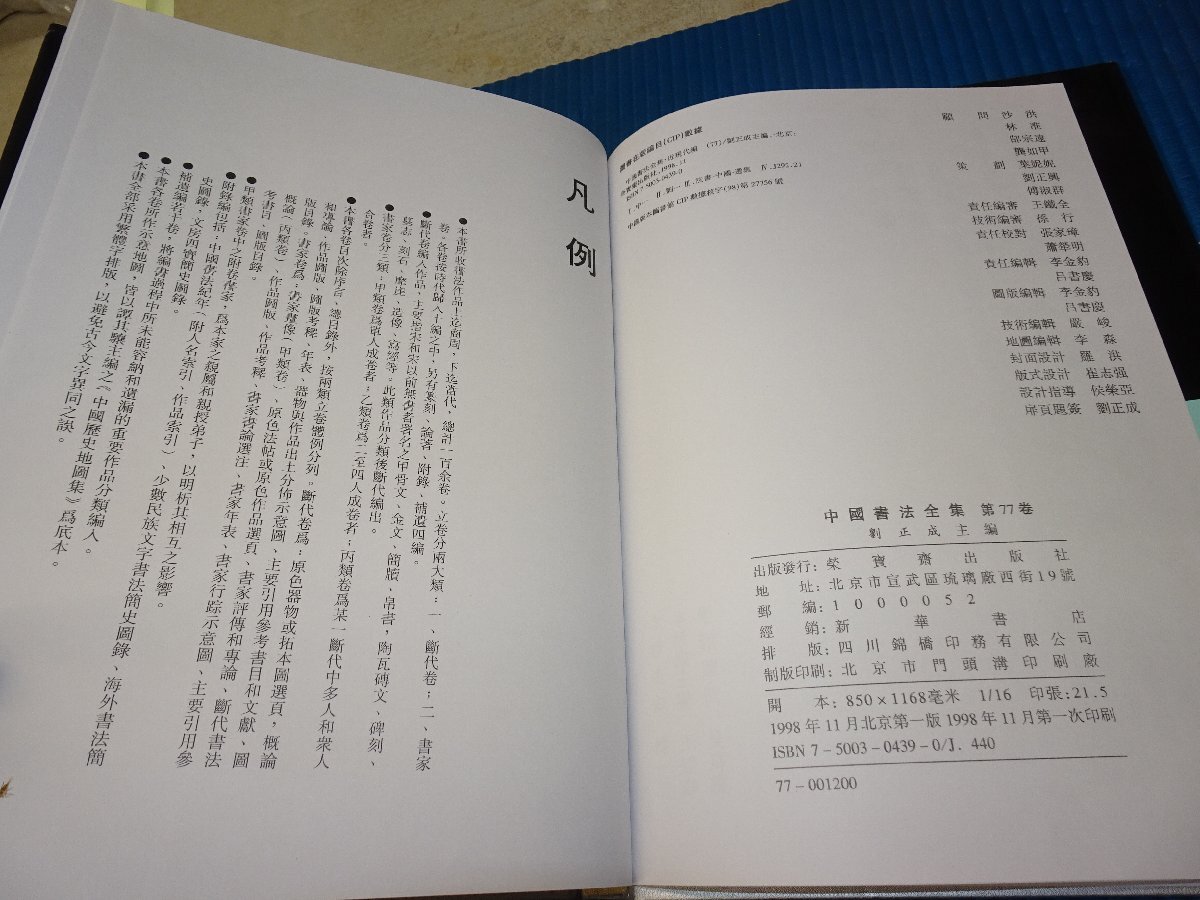 凡例
●本書所收書法作品上迄商周，下迄當代，總計一百余卷。立卷分兩大類：一、斷代卷；二、書家
卷。各卷按時代歸入十編之中，另有篆刻、論著、附錄、補遺四編。
●斷代卷編入作品，主要爲宋和宋以前無書者署名之甲骨文、金文、簡牘、帛書，陶瓦磚文、碑刻、
墓志、刻石、摩崖、造像、寫經等。此類作品分類後斷代編出。
●書家卷分三類：甲類卷爲單人成卷者；乙類卷爲二至四人成卷者；丙類卷爲某一斷代中多人和衆人
合卷者。
●本書各卷目次除序言、總目錄外，按兩類立卷體例分列。斷代卷爲：原色器物或拓本圖選頁，概論
和專論、作品圖版、圖版考釋、年表、器物與作品出土分佈示意圖、主要引用參考書目和文獻、圖
版目錄。書家卷爲：書家畫像（甲類卷）、原色法帖或原色作品選頁、書家評傳和專論、斷代書法
概論（丙類卷）、作品圖版、作品考釋、書家書論選注、書家年表、書家行踪示意圖、主要引用參
考書目、圖版目錄。
●甲類書家卷中之附卷僅家，爲本家之親屬和親授弟子，以明析其相互之影響。
●附錄編包括：中國書法紀年（附人名索引、作品索引）、少數民族文字書法簡史圖錄、海外書法簡
史圖錄，文房四寶簡史圖錄。
●補遺編若干卷，將編書過程中所未能容納和遺漏的重要作品分類編入。
●本書各卷所作示意地圖，皆以譚其驤主編之《中國歷史地圖集》爲底本。
●本書全部采用繁體字排版，以避免古今文字異同之誤。
圖書在版編目(CIP)數據
中國書法全集
(77)/劉正成主編.-北京:
榮寶齋出版社,1998.11
ISBN 7-5003-0439-0
中國版本圖書館 CIP 數據核字(98)第 27756 號
顧問 沙洪
林淮
邵宗遠
龔如甲
策劃 葉妮妮
劉正興
傅淑群
責任編審 王鐵全
技術編審 孫行
責任校對 張家璋
蕭犖明
責任編輯 李金豹
呂書慶
圖版編輯 李金豹
呂書慶
技術編輯 嚴峻
地圖編輯 李淼
封面設計 羅洪
版式設計 崔志强
設計指導 侯榮亞
扉頁題簽 劉正成
中國書法全集 第77卷
劉正成主編
出版發行：榮寶齋出版社
地址：北京市宣武區琉璃廠西街19號
郵編：1000052
經銷：新華書店
排版：四川錦橋印務有限公司
制版印刷：北京市門頭溝印刷廠
開本：850×1168毫米 1/16 印張：21.5
1998年11月北京第一版 1998年11月第一次印刷
ISBN 7-5003-0439-0/J．440
77-001200